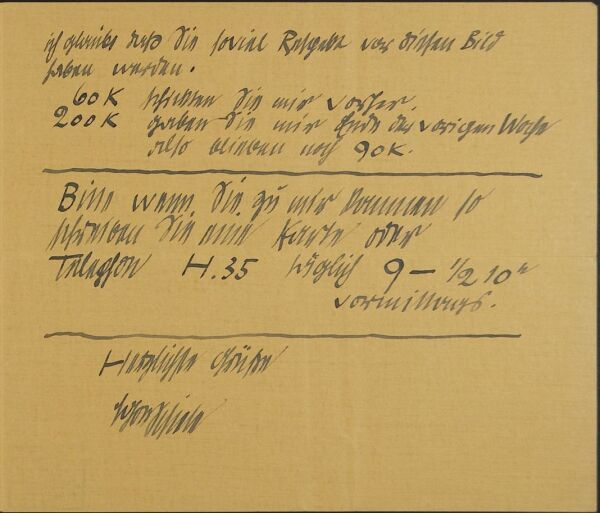 ich glaube daß Sie soviel Respekt vor diesem Bild
haben werden.
60 K schickten Sie mir vorher.
200 K gaben Sie mir Ende der vorigen Woche
also blieben noch 90 K.
Bitte wenn Sie zu mir kommen so
schreiben Sie eine Karte oder
Telephon H.35 täglich 9 – ½ 10ʰ
vormittags.
Herzlichste Grüße
Egon Schiele